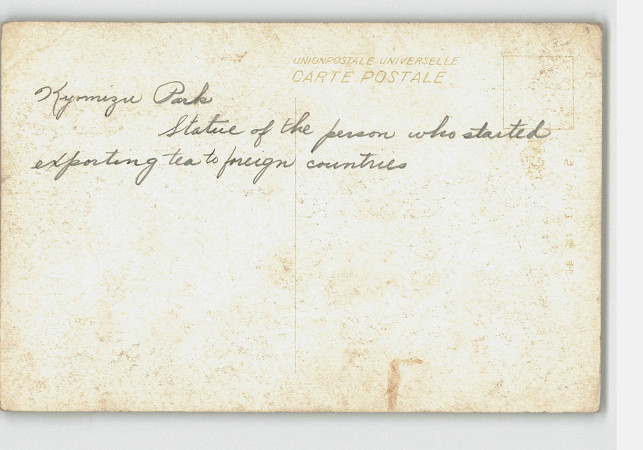 UNIONPOSTALE UNIVERSELLE
CARTE POSTALE
Kyomizu Park
Statue of the person who started
exporting tea to foreign countries